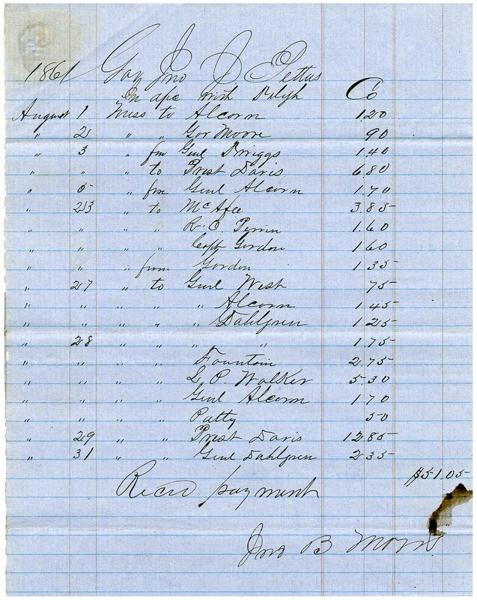 1861 Gov Jno J Pettus
In a/c with Telgh Co
August 1 Miss to Alcorn 1.20
" 2 " " Gov Moore 90
" 3 " fm Genl Griggs 1.40
" " " to Prest Davis 6.80
" 5 " fm Genl Alcorn 1.70
" 23 " to McAfee 3.85
" " " " R.O. 1.60
" " " " Capt Gordon 1.60
" " " from Gordon 1.35
" 27 " to Genl West 75
" " " " " Alcorn 1.45
" " " " Dahlgren 1.25
" 28 " " " " 1.75
" " " " Fountain 2.75
" " " " L.P. Walker 5.30
" " " " Genl Alcorn 1.70
" " " " Patty 50
" 29 " " Prest Davis 12.85
" 31 " " Genl Dahlgren 2.35
$51.05
Recd payment
Jno B